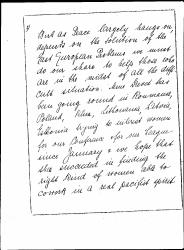 But as Peace largely hangs on,
depends on the solution of the
East European Problems we must
do our share to help those who
are in the midst of all the diffi
cult situation. Miss has
been going round in Roumania,
Poland, Lithuania, Latvia,
Estonia trying to interest women
for our Conference & for our League
since January & we hope that
she succeeded in finding the
right kind of women able to
cowork in a real pacifist spirit.